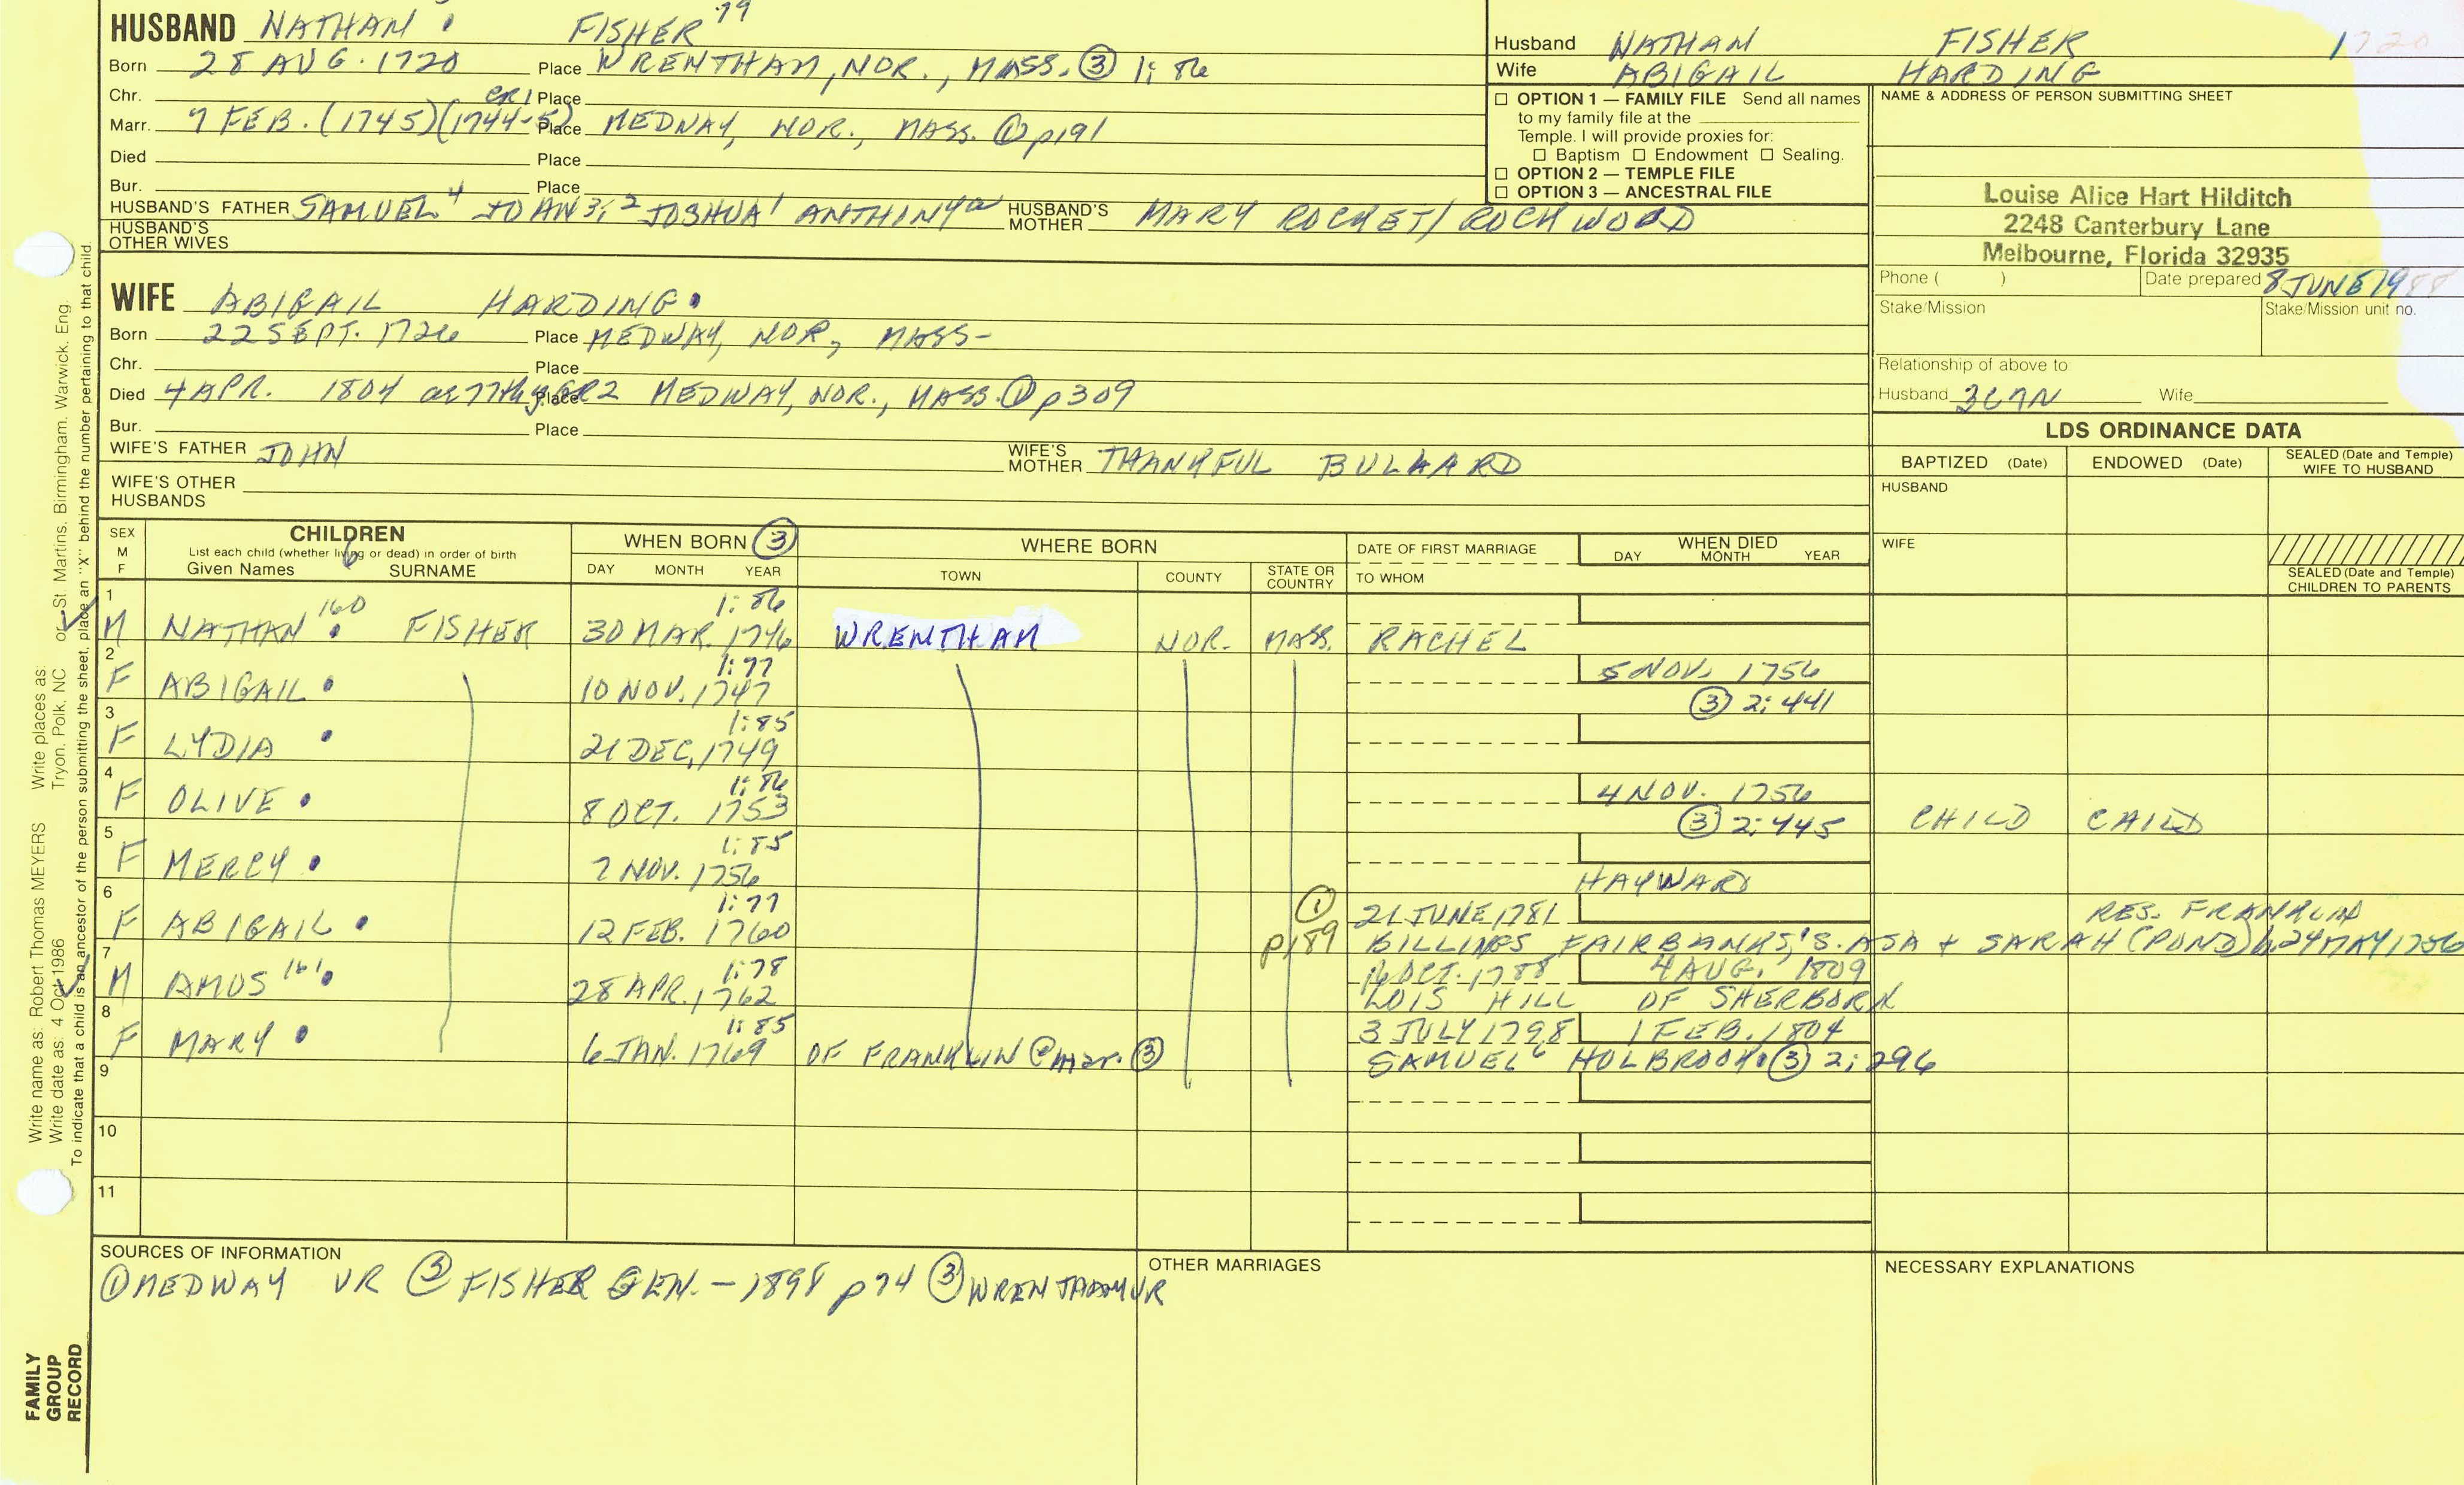 HUSBAND NATHAN FISHER 79
Born 28 AUG. 1720 Place WRENTHAM, NOR., MASS. ③ 1:86
Chr. CR1 Place
Marr. 7 FEB. (1745)(1744-5) Place MEDWAY, NOR., MASS. ① p191
Died Place
Bur. Place
HUSBAND'S FATHER SAMUEL 4 JOHN 3, 2 JOSHUA 1 ANTHINY HUSBAND'S MOTHER MARY ROCKET/ROCKWOOD
HUSBAND'S OTHER WIVES
Husband NATHAN FISHER 1720
Wife ABIGAIL HARDING
☐ OPTION 1 — FAMILY FILE Send all names
to my family file at the
Temple. I will provide proxies for:
☐ Baptism ☐ Endowment ☐ Sealing.
☐ OPTION 2 — TEMPLE FILE
☐ OPTION 3 — ANCESTRAL FILE
NAME & ADDRESS OF PERSON SUBMITTING SHEET
Louise Alice Hart Hilditch
2248 Canterbury Lane
Melbourne, Florida 32935
Phone ( ) Date prepared 8 JUNE 1988
Stake/Mission Stake/Mission unit no.
Relationship of above to
Husband 3C7N Wife
WIFE ABIGAIL HARDING
Born 22 SEPT. 1726 Place MEDWAY, NOR, MASS-
Chr. Place
Died 4 APR. 1804 ae 77th y. GR2 Place MEDWAY, NOR., MASS. ① p309
Bur. Place
WIFE'S FATHER JOHN WIFE'S MOTHER THANKFUL BULLARD
WIFE'S OTHER HUSBANDS
LDS ORDINANCE DATA
BAPTIZED (Date) ENDOWED (Date) SEALED (Date and Temple) WIFE TO HUSBAND
HUSBAND
WIFE
SEALED (Date and Temple) CHILDREN TO PARENTS
SEX M F
CHILDREN
List each child (whether living or dead) in order of birth
Given Names SURNAME
6
WHEN BORN ③
DAY MONTH YEAR
WHERE BORN
TOWN COUNTY STATE OR COUNTRY
DATE OF FIRST MARRIAGE
TO WHOM
WHEN DIED
DAY MONTH YEAR
1 160 1:86
M NATHAN FISHER 30 MAR. 1746 WRENTHAM NOR. MASS. RACHEL
2 1:77 5 NOV. 1756
F ABIGAIL 10 NOV. 1747 ③ 2:441
3 1:85
F LYDIA 21 DEC, 1749
4 1:86 4 NOV. 1756
F OLIVE 8 OCT. 1753 ③ 2:445 CHILD CHILD
5 1:85
F MERCY 7 NOV. 1756 HAYWARD
6 1:77 ① 21 JUNE, 1781 RES. FRANKLIN
F ABIGAIL 12 FEB. 1760 p189 BILLINGS FAIRBANKS, S. ASA + SARAH (POND) b. 24 MAY 1756
7 161 1:78 16 OCT. 1788 4 AUG. 1809
M AMOS 28 APR. 1762 LOIS HILL OF SHERBORN
8 1:85 3 JULY 1798 1 FEB. 1804
F MARY 6 JAN. 1769 OF FRANKLIN @ mar. ③ SAMUEL 6 HOLBROOK. ③ 2:296
9
10
11
SOURCES OF INFORMATION
① MEDWAY VR ② FISHER GEN. - 1898 p74 ③ WRENTHAM VR
OTHER MARRIAGES
NECESSARY EXPLANATIONS
Write name as: Robert Thomas MEYERS Write places as: Tryon, Polk, NC or St. Martins, Birmingham, Warwick, Eng.
Write date as: 4 Oct 1986
To indicate that a child is an ancestor of the person submitting the sheet, place an "X" behind the number pertaining to that child.
FAMILY GROUP RECORD